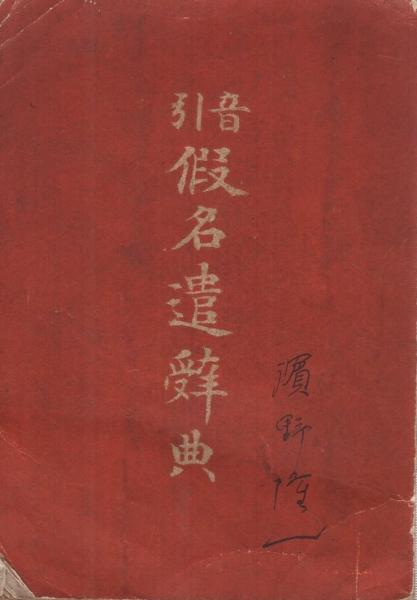 音引
假名遣辭典
濱野 一